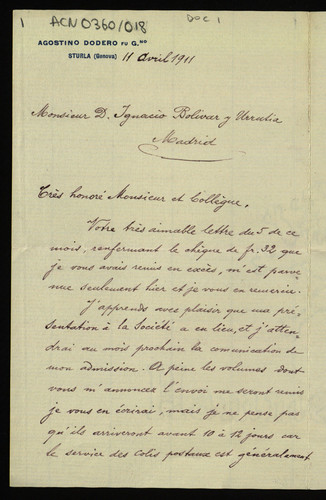 ACN0360/018
DOC 1
AGOSTINO DODERO FU G.NO
STURLA (Genova) 11 avril 1911
Monsieur D. Ignacio Bolivar y Urrutia
Madrid
Très honoré Monsieur et Collègue,
Votre très aimable lettre du 5 de ce
mois, renfermant le chèque de fr. 32 que
je vous avais remis en excès, m'est parve-
nue seulement hier et je vous en remercie.
J'apprends avec plaisir que ma pré-
sentation à la Société a eu lieu, et j'atten-
drai au mois prochain la comunication de
mon admission. A peine les volumes dont
vous m'annoncez l'envoi me seront remis
je vous en écrirai, mais je ne pense pas
qu'ils arriveront avant 10 à 12 jours car
le service des colis postaux est généralement